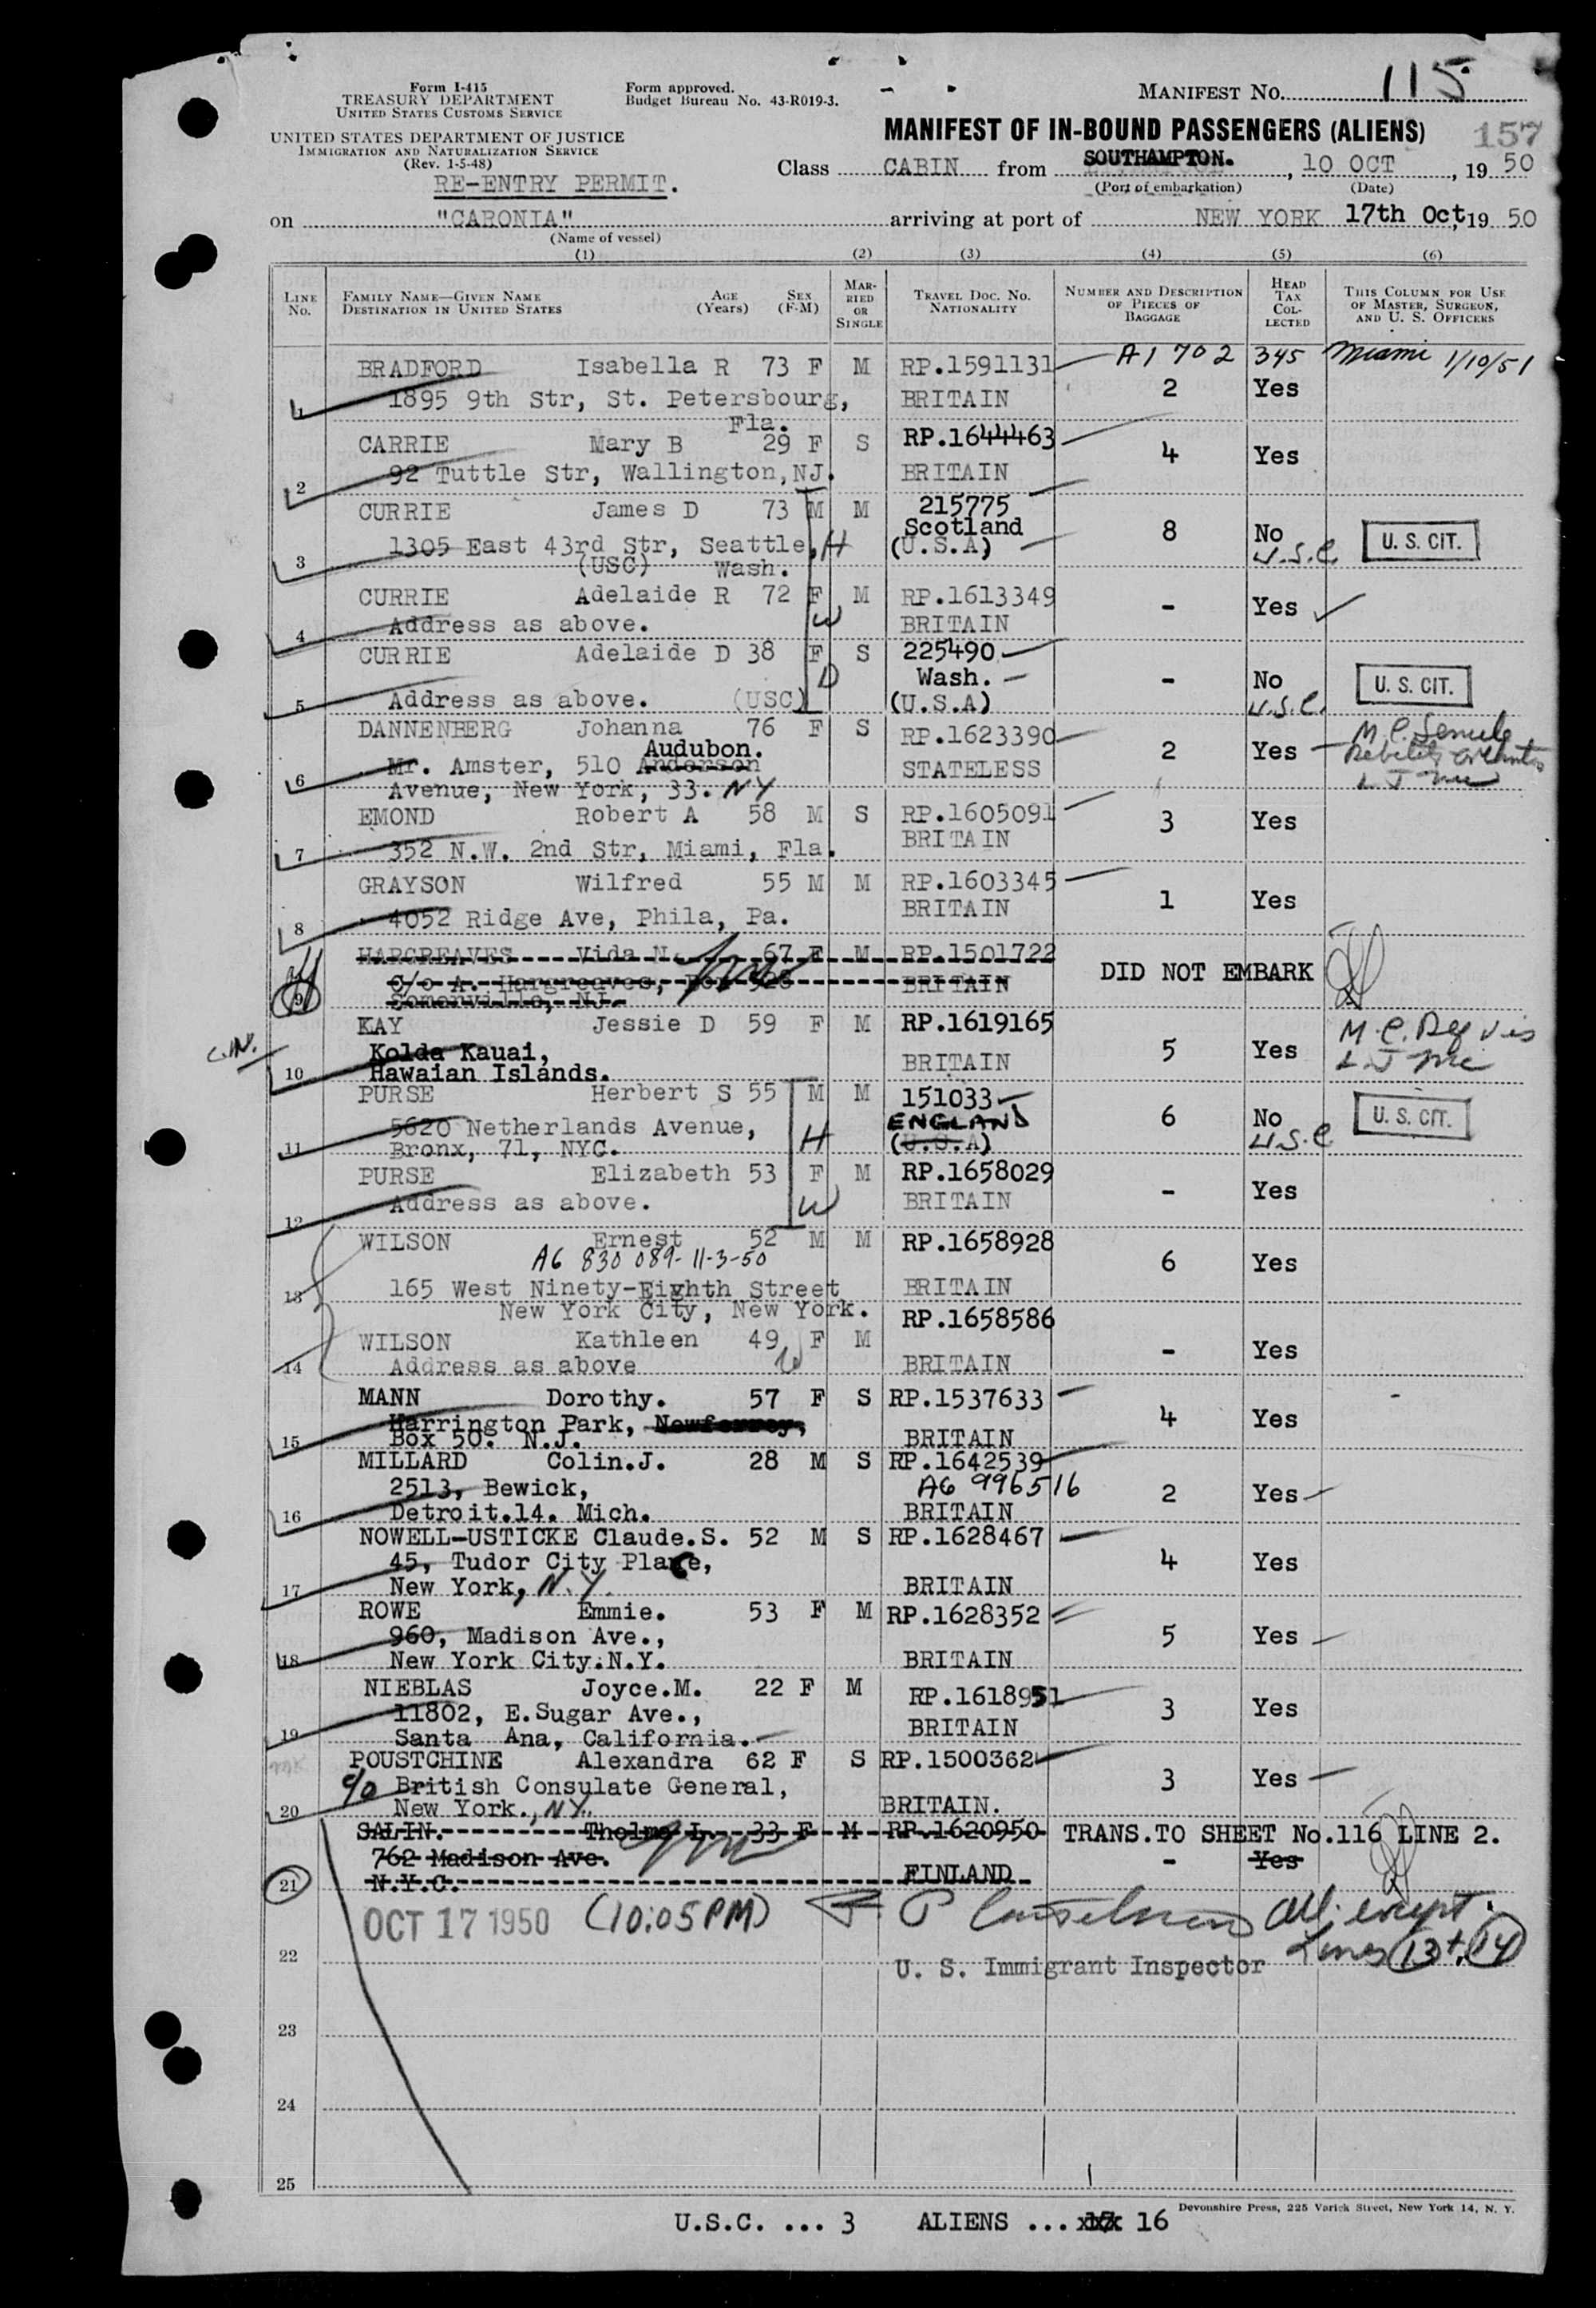 Form I-415
TREASURY DEPARTMENT
UNITED STATES CUSTOMS SERVICE
UNITED STATES DEPARTMENT OF JUSTICE
IMMIGRATION AND NATURALIZATION SERVICE
(Rev. 1-5-48)
RE-ENTRY PERMIT.
Form approved.
Budget Bureau No. 43-R019-3.
MANIFEST NO. 115
MANIFEST OF IN-BOUND PASSENGERS (ALIENS) 157
Class CABIN from SOUTHAMPTON., 10 OCT, 19 50
(Port of embarkation) (Date)
on "CARONIA" arriving at port of NEW YORK 17th Oct, 19 50
(Name of vessel)
(1) (2) (3) (4) (5) (6)
LINE NO. FAMILY NAME—GIVEN NAME DESTINATION IN UNITED STATES AGE (YEARS) SEX (F-M) MARRIED OR SINGLE TRAVEL DOC. NO. NATIONALITY NUMBER AND DESCRIPTION OF PIECES OF BAGGAGE HEAD TAX COLLECTED THIS COLUMN FOR USE OF MASTER, SURGEON, AND U. S. OFFICERS
BRADFORD Isabella R 73 F M RP.1591131 A1 702 345 Miami 1/10/51
1 1895 9th Str, St. Petersbourg, Fla. BRITAIN 2 Yes
CARRIE Mary B 29 F S RP.1644463 4 Yes
2 92 Tuttle Str, Wallington, NJ. BRITAIN
CURRIE James D 73 M M 215775 8 No
3 1305 East 43rd Str, Seattle, H Scotland U.S.C. U. S. CIT.
(USC) Wash. (U.S.A)
CURRIE Adelaide R 72 F M RP.1613349 - Yes
4 Address as above. W BRITAIN
CURRIE Adelaide D 38 F S 225490
D Wash. - No U. S. CIT.
5 Address as above. (USC) (U.S.A) U.S.C.
DANNENBERG Johanna 76 F S RP.1623390 2 Yes M.C. Senile
Audubon.
6 Mr. Amster, 510 Anderson STATELESS
Avenue, New York, 33. NY
EMOND Robert A 58 M S RP.1605091 3 Yes
7 352 N.W. 2nd Str, Miami, Fla. BRITAIN
GRAYSON Wilfred 55 M M RP.1603345 1 Yes
8 4052 Ridge Ave, Phila, Pa. BRITAIN
HARGREAVES Vida N. 67 F M RP.1501722 DID NOT EMBARK
9 C/o A. Hargreaves, BRITAIN
Somerville, NJ.
KAY Jessie D 59 F M RP.1619165 5 Yes M.C. Def vis
C.IN. Kolda Kauai, BRITAIN
10 Hawaian Islands.
PURSE Herbert S 55 M M 151033 6 No U. S. CIT.
5620 Netherlands Avenue, H ENGLAND U.S.C
11 Bronx, 71, NYC. (U.S.A)
PURSE Elizabeth 53 F M RP.1658029 - Yes
12 Address as above. W BRITAIN
WILSON Ernest 52 M M RP.1658928 6 Yes
A6 830 089- 11-3-50
13 165 West Ninety-Eighth Street BRITAIN
New York City, New York.
WILSON Kathleen 49 F M RP.1658586 - Yes
14 Address as above W BRITAIN
MANN Dorothy. 57 F S RP.1537633 4 Yes
Harrington Park,
15 Box 50. N.J. BRITAIN
MILLARD Colin.J. 28 M S RP.1642539 2 Yes
2513, Bewick, A6 996516
16 Detroit.14. Mich. BRITAIN
NOWELL-USTICKE Claude.S. 52 M S RP.1628467 4 Yes
45, Tudor City Place,
17 New York, N.Y. BRITAIN
ROWE Emmie. 53 F M RP.1628352 5 Yes
960, Madison Ave.,
18 New York City.N.Y. BRITAIN
NIEBLAS Joyce.M. 22 F M RP.1618951 3 Yes
11802, E.Sugar Ave., BRITAIN
19 Santa Ana, California.
POUSTCHINE Alexandra 62 F S RP.1500362 3 Yes
c/o British Consulate General,
20 New York., NY. BRITAIN.
SALIN. Thelma L. 33 F M RP.1620950 TRANS.TO SHEET No.116 LINE 2.
762 Madison Ave. - Yes
21 N.Y.C. FINLAND
OCT 17 1950 (10:05PM) All except
22 U. S. Immigrant Inspector Lines 13 + 14
23
24
25
Devonshire Press, 225 Varick Street, New York 14, N. Y.
U.S.C. ... 3 ALIENS ... 16